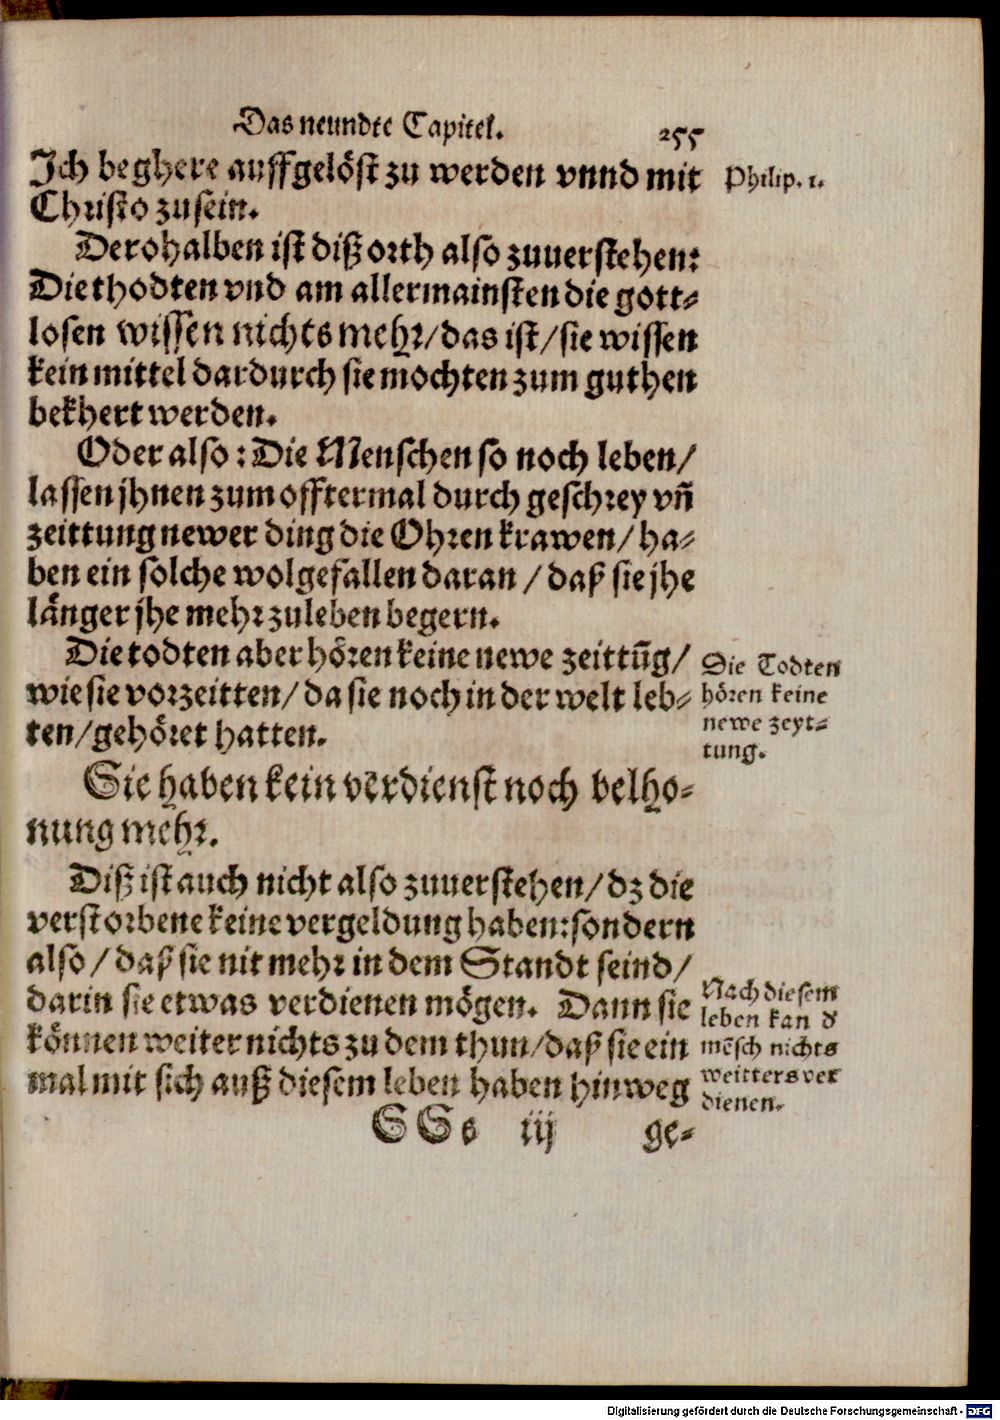 Das neundte Capitel. 255
Ich beghere auffgelöst zu werden vnnd mit
Philip. 1.
Christo zusein.
Derohalben ist diß orth also zuuerstehen:
Die thodten vnd am allermainsten die gott⸗
losen wissen nichts mehr/das ist/sie wissen
kein mittel dardurch sie mochten zum guthen
bekhert werden.
Oder also: Die Menschen so noch leben/
lassen jhnen zum offtermal durch geschrey vn̄
zeittung newer ding die Ohren krawen/ha⸗
ben ein solche wolgefallen daran/daß sie jhe
länger jhe mehr zuleben begern.
Die todten aber hören keine newe zeittūg/
wie sie vorzeitten/da sie noch in der welt leb⸗
ten/gehöret hatten.
Die Todten
hören keine
newe zeyt⸗
tung.
Sie haben kein verdienst noch belho⸗
nung mehr.
Diß ist auch nicht also zuuerstehen/dz die
verstorbene keine vergeldung haben:sondern
also/daß sie nit mehr in dem Standt seind/
darin sie etwas verdienen mögen. Dann sie
können weiter nichts zu dem thun/daß sie ein
mal mit sich auß diesem leben haben hinweg
Nach diesem
leben kan d
mēsch nichts
weitters ver
dienen.
SSs iij ge⸗
Digitalisierung gefördert durch die Deutsche Forschungsgemeinschaft - DFG